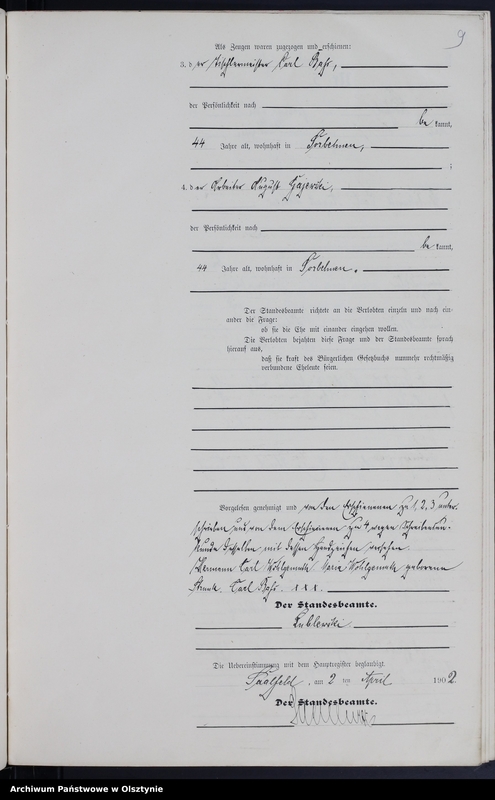 9
Als Zeugen waren zugezogen und erschienen:
3. der Tischlermeister Carl Bahr,
der Persönlichkeit nach
be kannt,
44 Jahre alt, wohnhaft in
;
4. der Arbeiter August
der Persönlichkeit nach
be kannt,
44 Jahre alt, wohnhaft in
Der Standesbeamte richtete an die Verlobten einzeln und nach ein-
ander die Frage:
ob sie die Ehe mit einander eingehen wollen.
Die Verlobten bejahten diese Frage und der Standesbeamte sprach
hierauf aus,
daß sie kraft des Bürgerlichen Gesetzbuchs nunmehr rechtmäßig
verbundene Eheleute seien.
Vorgelesen genehmigt und von den Erschienenen zu 1, 2, 3 unter-
schrieben und von dem Erschienenen zu 4 wegen Schreibensun-
kunde desselben mit dessen Handzeichen versehen.
Hermann Carl Wohlgemuth. Maria Wohlgemuth geborene
Carl Bahr. xxx.
Der Standesbeamte.
Die Uebereinstimmung mit dem Hauptregister beglaubigt.
Saalfeld, am 2 ten April 1902.
Der Standesbeamte.
Archiwum Państwowe w Olsztynie